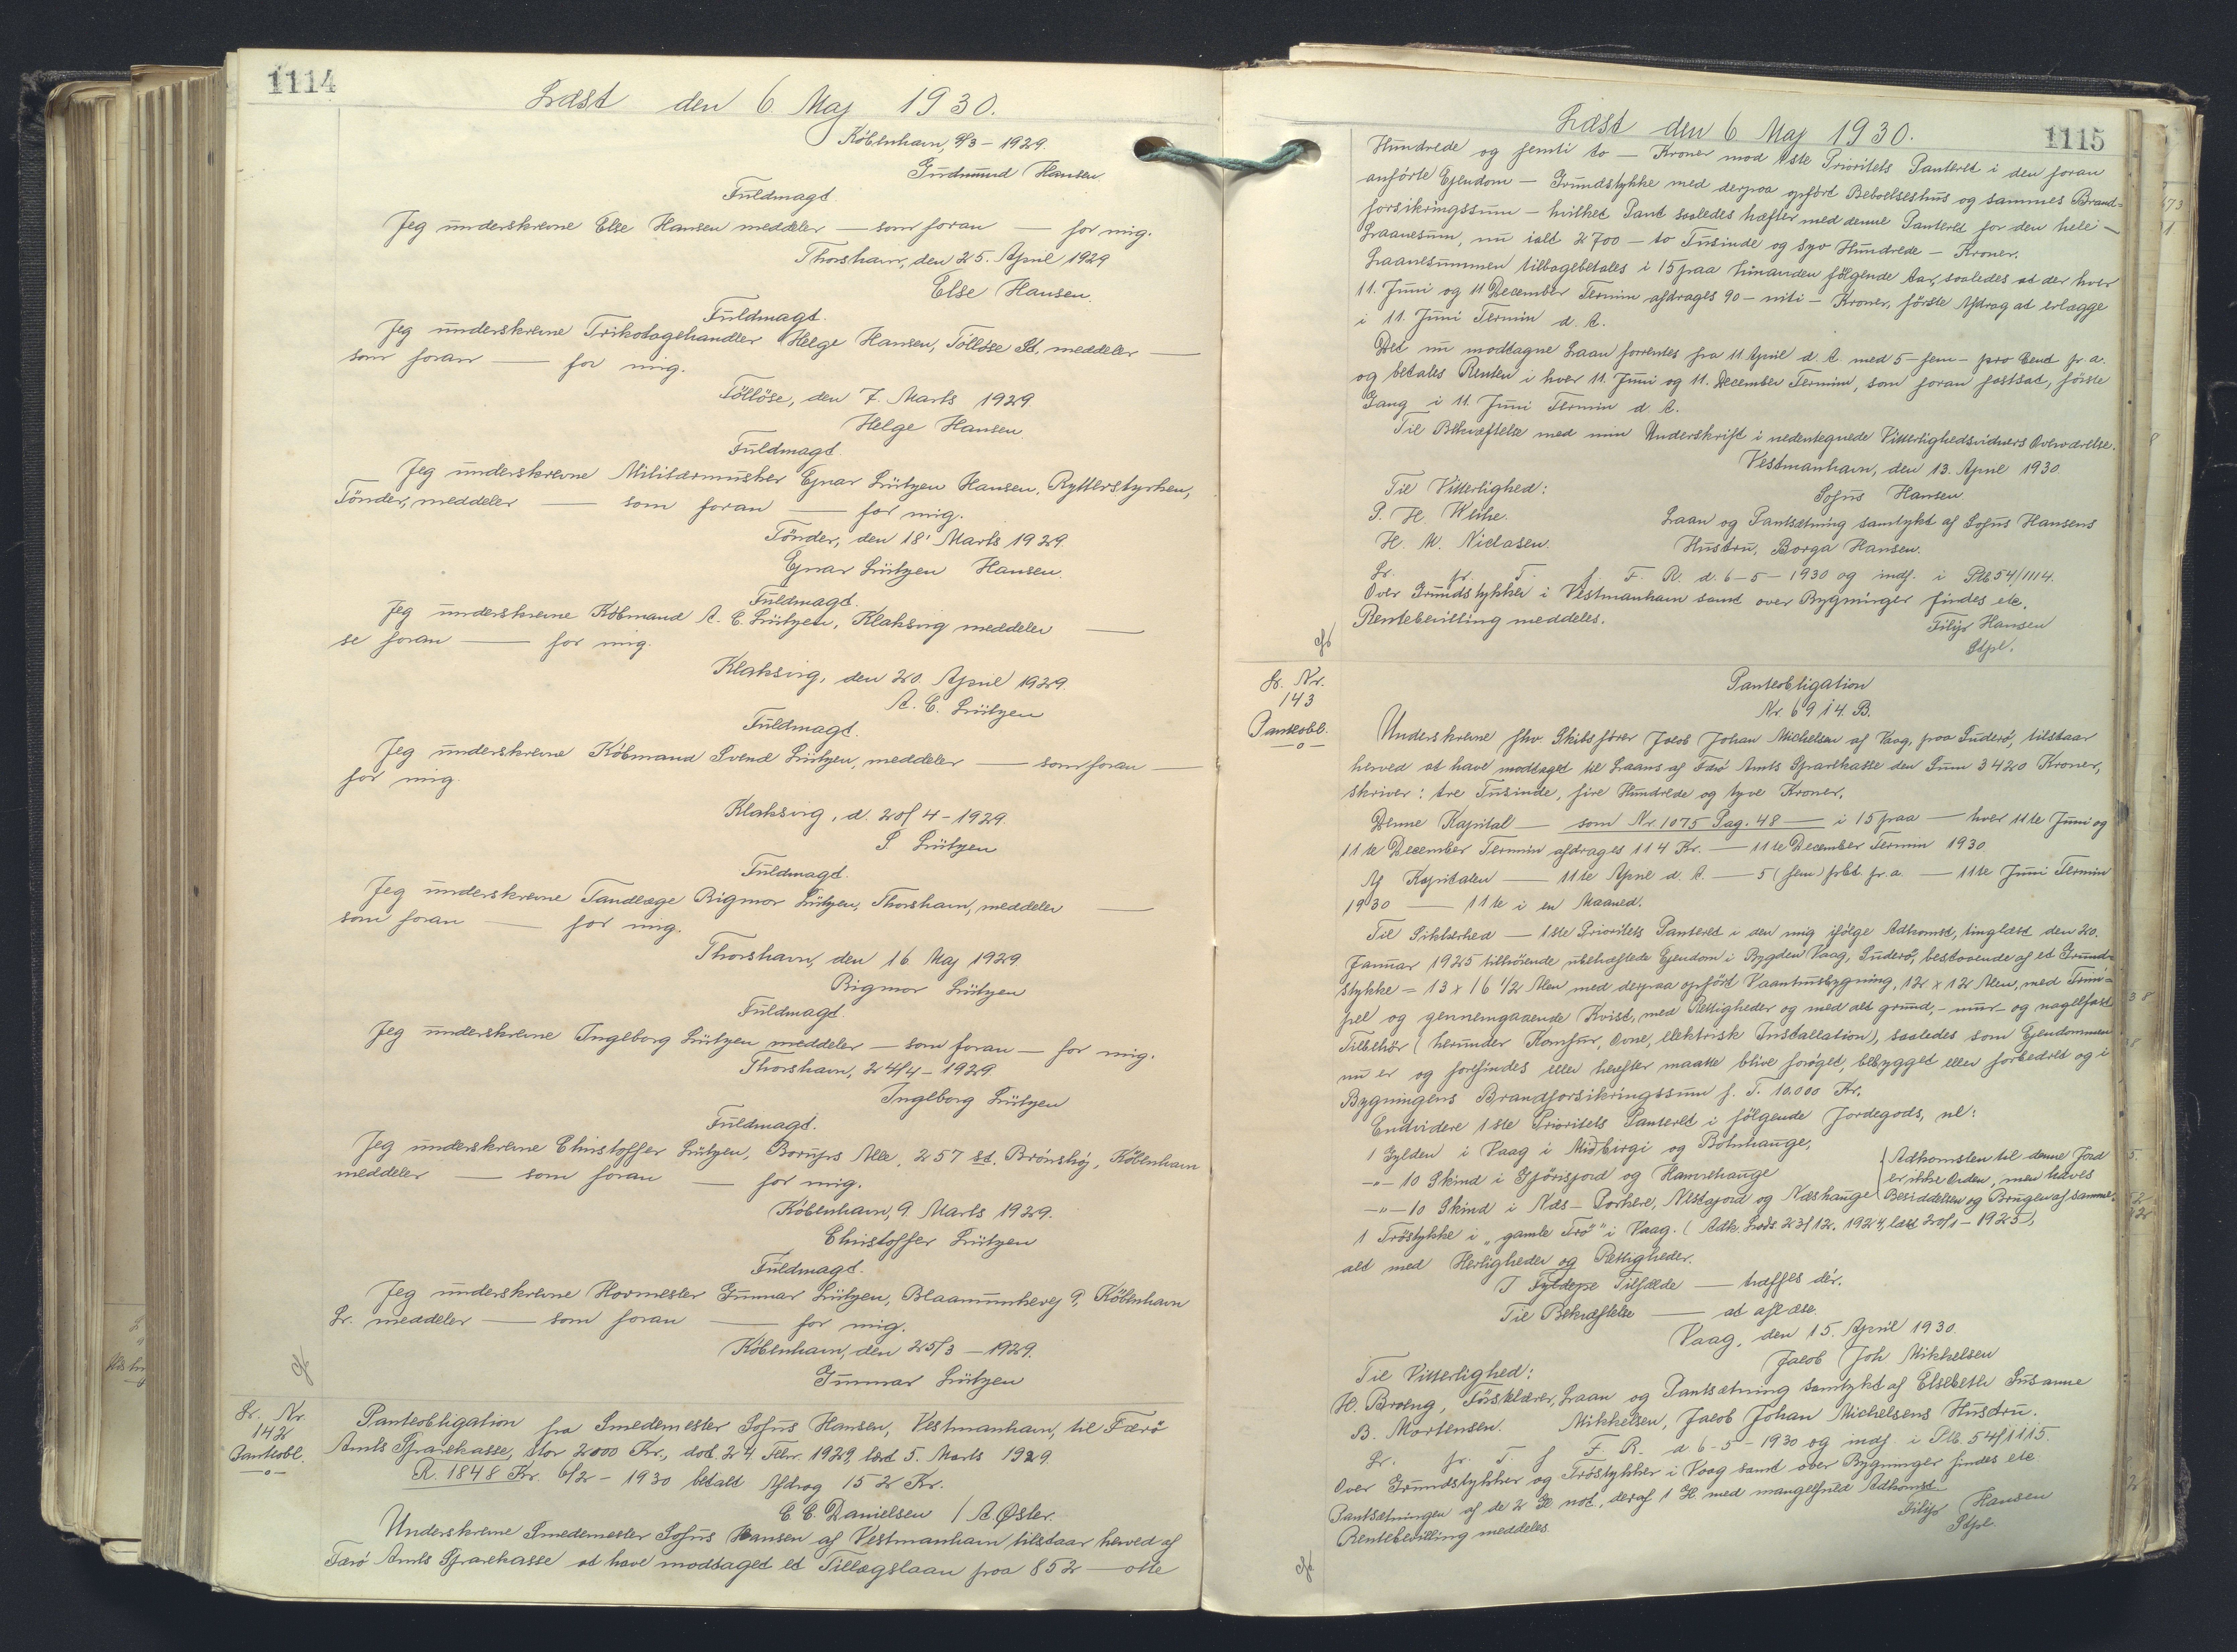 1114
Læst den 6. Maj 1930.
København, 9/3 - 1929.
Gudmund Hansen
Fuldmagt.
Jeg underskrevne Else Hansen meddeler — som foran — for mig.
Thorshavn, den 25. April 1929
Else Hansen.
Fuldmagt.
Jeg underskrevne Trikotagehandler Helge Hansen, Tölløse St, meddeler —
som foran — for mig.
Tölløse, den 7. Marts 1929.
Helge Hansen
Fuldmagt.
Jeg underskrevne Militærmusiker Ejnar Lützen Hansen, Rytterstyrken,
Tønder, meddeler — som foran — for mig.
Tønder, den 18' Marts 1929.
Ejnar Lützen Hansen.
Fuldmagt.
Jeg underskrevne Købmand A. C. Lützen, Klaksvig meddeler —
se foran — for mig.
Klaksvig, den 20. April 1929.
A. C. Lützen
Fuldmagt.
Jeg underskrevne Købmand Svend Lützen, meddeler — som foran —
for mig.
Klaksvig, d. 20/4 - 1929.
S Lützen
Fuldmagt.
Jeg underskrevne Tandlæge Rigmor Lützen, Thorshavn, meddeler —
som foran — for mig.
Thorshavn, den 16 Maj 1929.
Rigmor Lützen
Fuldmagt.
Jeg underskrevne Ingeborg Lützen meddeler — som foran — for mig.
Thorshavn, 24/4 - 1929.
Ingeborg Lützen
Fuldmagt.
Jeg underskrevne Christoffer Lützen, Borups Alle, 257 st. Brønshøj, København
meddeler — som foran — for mig.
København, 9. Marts 1929.
Christoffer Lützen
Fuldmagt.
Jeg underskrevne Hovmester Gunnar Lützen, Blaamunkevej 9, København
Lr. meddeler — som foran — for mig.
København, den 25/3 - 1929.
Gunnar Lützen
Lr. Nr.
142
Panteobl.
Panteobligation fra Smedemester Sofus Hansen, Vestmanhavn, til Færø
Amts Sparekasse, stor 2000 Kr., dat. 24 Febr. 1929, læst 5. Marts 1929.
R. 1848 Kr. 6/2 - 1930 betalt Afdrag 152 Kr.
C C. Danielsen / A. Øster.
Underskrevne Smedemester Sofus Hansen af Vestmanhavn tilstaar herved af
Færø Amts Sparekasse at have modtaget et Tillægslaan paa 852 — otte
1115
Læst den 6 Maj 1930.
Hundrede og femti to — Kroner mod 1ste Prioritets Panteret i den foran
anførte Ejendom — Grundstykke med derpaa opført Beboelseshus og sammes Brand=
forsikringssum — hvilket Pant saaledes hæfter med denne Panteret for den hele —
Laanesum, nu ialt 2700 — to Tusinde og syv Hundrede — Kroner.
Laanesummen tilbagebetales i 15 paa hinanden følgende Aar, saaledes at der hver
11. Juni og 11 December Termin afdrages 90 — niti — Kroner, første Afdrag at erlægge
i 11. Juni Termin d. A.
Det nu modtagne Laan forrentes fra 11 April d. A. med 5 — fem — pro Cent pr a.
og betales Renten i hver 11. Juni og 11. December Termin, som foran fastsat, første
Gang i 11. Juni Termin d. A.
Til Bekræftelse med min Underskrift i nedentegnede Vitterlighedsvidners Overværelse.
Vestmanhavn, den 13. April 1930.
Til Vitterlighed: Sofus Hansen
P. H. Weihe. Laan og Pantsætning samtykt af Sofus Hansens
H. M. Niclasen. Hustru, Borga Hansen.
Lr. fr. T. f. F. R. d. 6-5-1930 og indf. i Ptb. 54/1114.
Over Grundstykker i Vestmanhavn samt over Bygninger findes etc.
Rentebevilling meddeles. Filip Hansen
Stpl.
Lr. Nr.
143
Panteobl.
Panteobligation
Nr 6914. B.
Underskrevne fhv. Skibsfører Jacob Johan Michelsen af Vaag, paa Suderø, tilstaar
herved at have modtaget til Laans af Færø Amts Sparekasse den Sum 3420 Kroner,
skriver: tre Tusinde, fire Hundrede og tyve Kroner.
Denne Kapital — som Nr. 1075 Pag. 48 — i 15 paa — hver 11te Juni og
11te December Termin afdrages 114 Kr. — 11te December Termin 1930
Af Kapitalen — 11te April d. A. — 5 (fem) pCt. pr. a. — 11te Juni Termin
1930 — 11te i en Maaned.
Til Sikkerhed — 1ste Prioritets Panteret i den mig ifølge Adkomst, tinglæst den 20.
Januar 1925 tilhørende ubehæftede Ejendom i Bygden Vaag, Suderø, bestaaende af et Grund=
stykke = 13 x 16 1/2 Alen med derpaa opført Vaaningsbygning, 12 x 12 Alen, med Frem=
pel og gennemgaaende Kvist, med Rettigheder og med alt grund,- mur- og nagelfast
Tilbehør (herunder Komfur, Ovne, elektrisk Installation), saaledes som Ejendommen
nu er og forefindes eller herefter maatte blive forøget, bebygget eller forbedret og i
Bygningens Brandforsikringssum p. T. 10.000 Kr.
Endvidere 1ste Prioritets Panteret i følgende Jordegods, nl:
1 Gylden i Vaag i Miðbirgi og Botnhauge,
-"- 10 Skind i Gjørisjord og Hamrehauge
-"- 10 Skind i Næs - Porkere, Nestajord og Næshauge
Adkomsten til denne Jord
er ikke Orden, men haves
Besiddelsen og Brugen af samme.
1 Trøstykke i „gamle Trø" i Vaag. (Adk. Lods 23/12. 1924, læst 20/1 - 1925),
alt med Herligheder og Rettigheder.
I Tilfælde — træffes dér.
Til Bekræftelse — at aflæse.
Vaag, den 15. April 1930.
Jacob Joh Mikkelsen
Til Vitterlighed:
H. Broeng, Førstelærer, Laan og Pantsætning samtykt af Elsebeth Susanne
B. Mortensen. Mikkelsen, Jacob Johan Michelsens Hustru.
Lr. fr. T. f F. R. d 6-5-1930 og indf. i Ptb. 54/1115.
Over Grundstykker og Trøstykker i Vaag samt over Bygninger findes etc.
Pantsætningen af de 2 Gl not, deraf 1 Gl. med mangelfuld Adkomst.
Rentebevilling meddeles. Filip Hansen
Stpl.